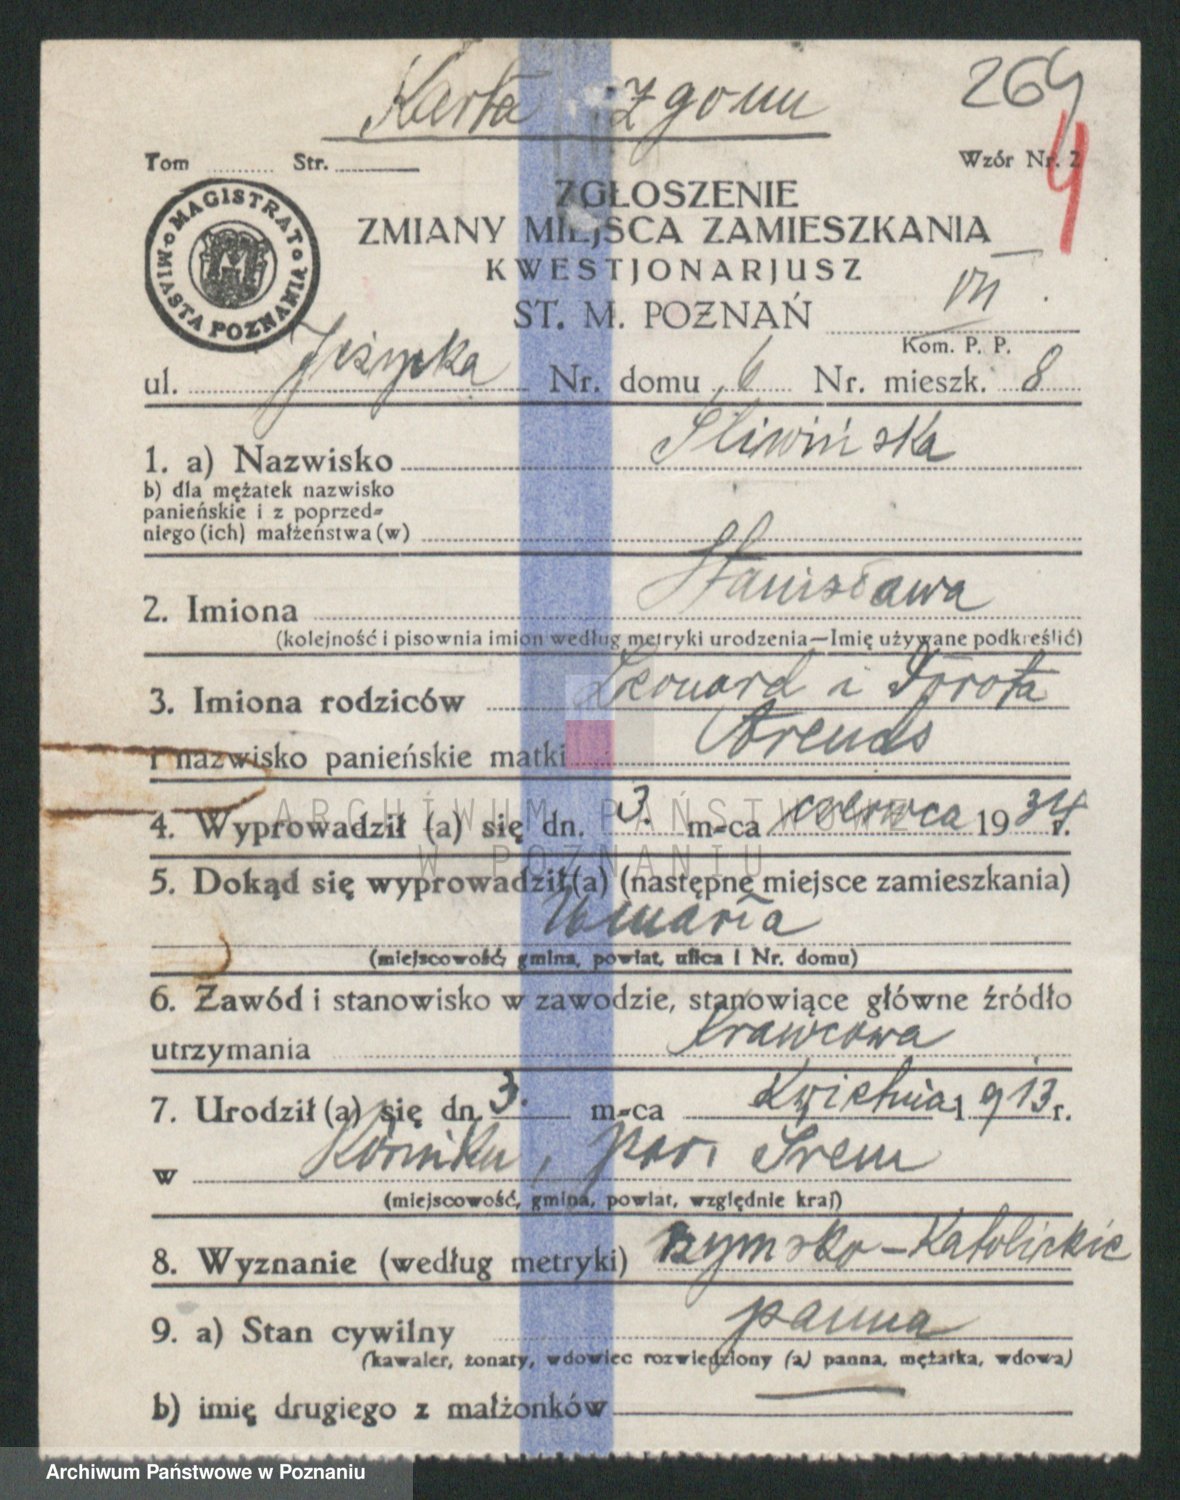 Karta zgonu
264
4
Tom ........ Str. ........
Wzór Nr. 2
MAGISTRAT MIASTA POZNANIA
ZGŁOSZENIE
ZMIANY MIEJSCA ZAMIESZKANIA
KWESTJONARJUSZ
ST. M. POZNAŃ VII.
Kom. P. P.
ul. Jeżycka Nr. domu 6 Nr. mieszk. 8
1. a) Nazwisko Śliwińska
b) dla mężatek nazwisko
panieńskie i z poprzed=
niego (ich) małżeństwa (w)
2. Imiona Stanisława
(kolejność i pisownia imion według metryki urodzenia—Imię używane podkreślić)
3. Imiona rodziców Leonard i Dorota
i nazwisko panieńskie matki Arends
4. Wyprowadził (a) się dn. 3. m=ca czerwca 1934 r.
ARCHIWUM PAŃSTWOWE
W POZNANIU
5. Dokąd się wyprowadził (a) (następne miejsce zamieszkania)
Umarła
(miejscowość, gmina, powiat, ulica i Nr. domu)
6. Zawód i stanowisko w zawodzie, stanowiące główne źródło
utrzymania Krawcowa
7. Urodził (a) się dn. 3. m=ca Kwietnia 1913 r.
w Kórniku, pow. Śrem
(miejscowość, gmina, powiat, względnie kraj)
8. Wyznanie (według metryki) rzymsko-Katolickie
9. a) Stan cywilny panna
(kawaler, żonaty, wdowiec rozwiedziony (a) panna, mężatka, wdowa)
b) imię drugiego z małżonków
Archiwum Państwowe w Poznaniu